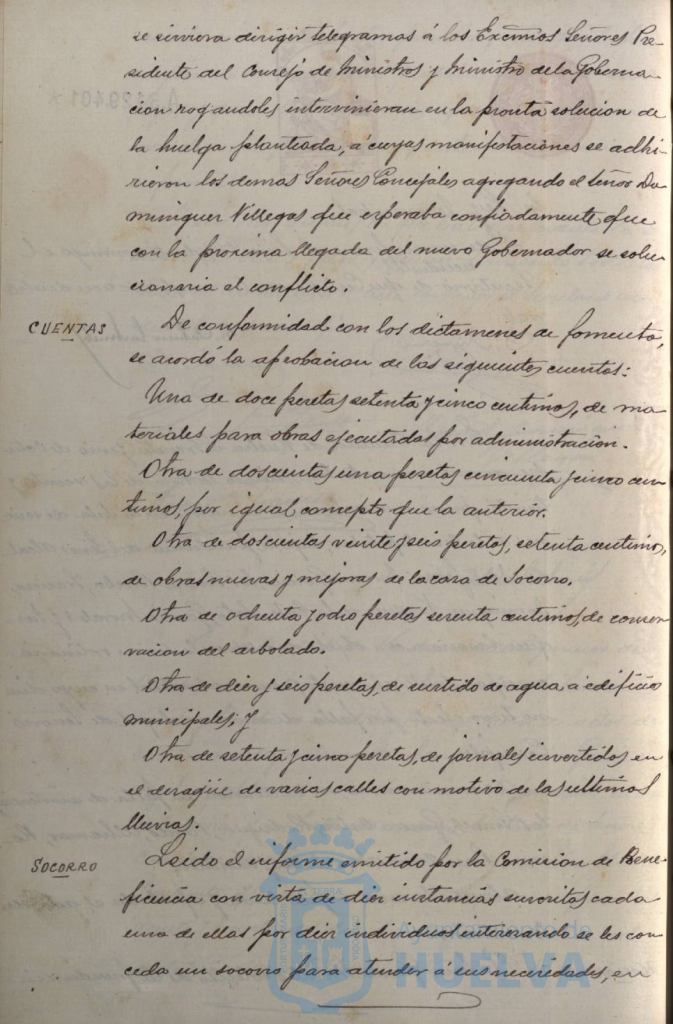 se sirviera dirigir telegramas á los Excmos Señores Pre-
sidente del Consejo de Ministros y Ministro de la Goberna-
cion rogandoles intervinieran en la pronta solucion de
la huelga planteada, á cuyas manifestaciones se adhi-
rieron los demas Señores Concejales agregando el Señor Do-
minguez Villegas que esperaba confiadamente que
con la proxima llegada del nuevo Gobernador se solu-
cionaria el conflicto.
CUENTAS
De conformidad con los dictamenes de fomento,
se acordó la aprobacion de las siguientes cuentas:
Una de doce pesetas setenta y cinco centimos, de ma-
teriales para obras ejecutadas por administracion.
Otra de doscientas una pesetas cincuenta y cinco cen-
timos, por igual concepto que la anterior.
Otra de doscientas veinte y seis pesetas, setenta centimos,
de obras nuevas y mejoras de la casa de Socorro.
Otra de ochenta y ocho pesetas sesenta centimos, de conser-
vacion del arbolado.
Otra de diez y seis pesetas, de surtido de agua á edificios
municipales; y
Otra de setenta y cinco pesetas, de jornales invertidos en
el desagüe de varias calles con motivo de las ultimas
lluvias.
SOCORRO
Leido el informe emitido por la Comision de Bene-
ficencia con vista de diez instancias suscritas cada
una de ellas por diez individuos interesando se les con-
ceda un socorro para atender á sus necesidades, en
Ayuntamiento de
HUELVA